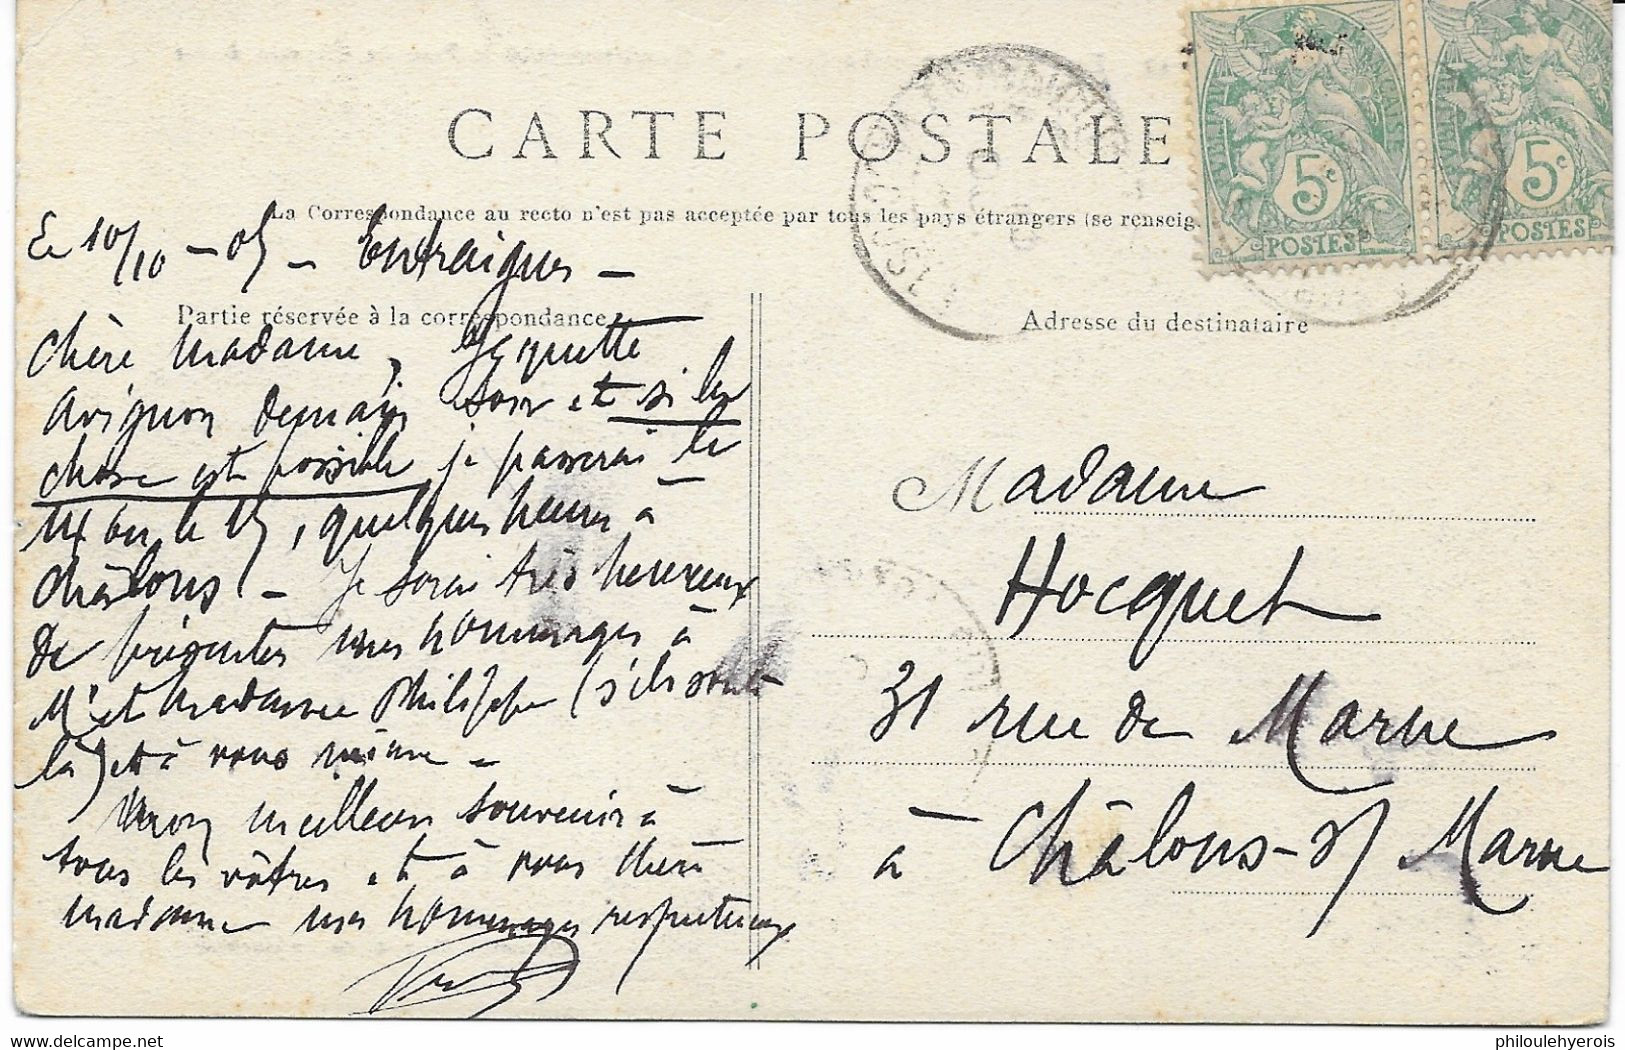 CARTE POSTALE
La Correspondance au recto n'est pas acceptée par tous les pays étrangers (se renseig
Le 10/10 - 05 - Entraigues -
Partie réservée à la correspondance
Adresse du destinataire
Chère Madame, Je quitte
Avignon demain soir et si la
chose est possible je passerai le
14 ou le 15, quelques heures à
Châlons - Je serai très heureux
de présenter mes hommages à
Mr et Madame Philippe (s'ils sont
là) et à vous même -
Mon meilleur souvenir à
tous les vôtres et à vous chère
madame mes hommages respectueux
Madame
Hocquet
31 rue de Marne
à Châlons-s/Marne
5c
POSTES
5c
POSTES
delcampe.net
philoulehyerois